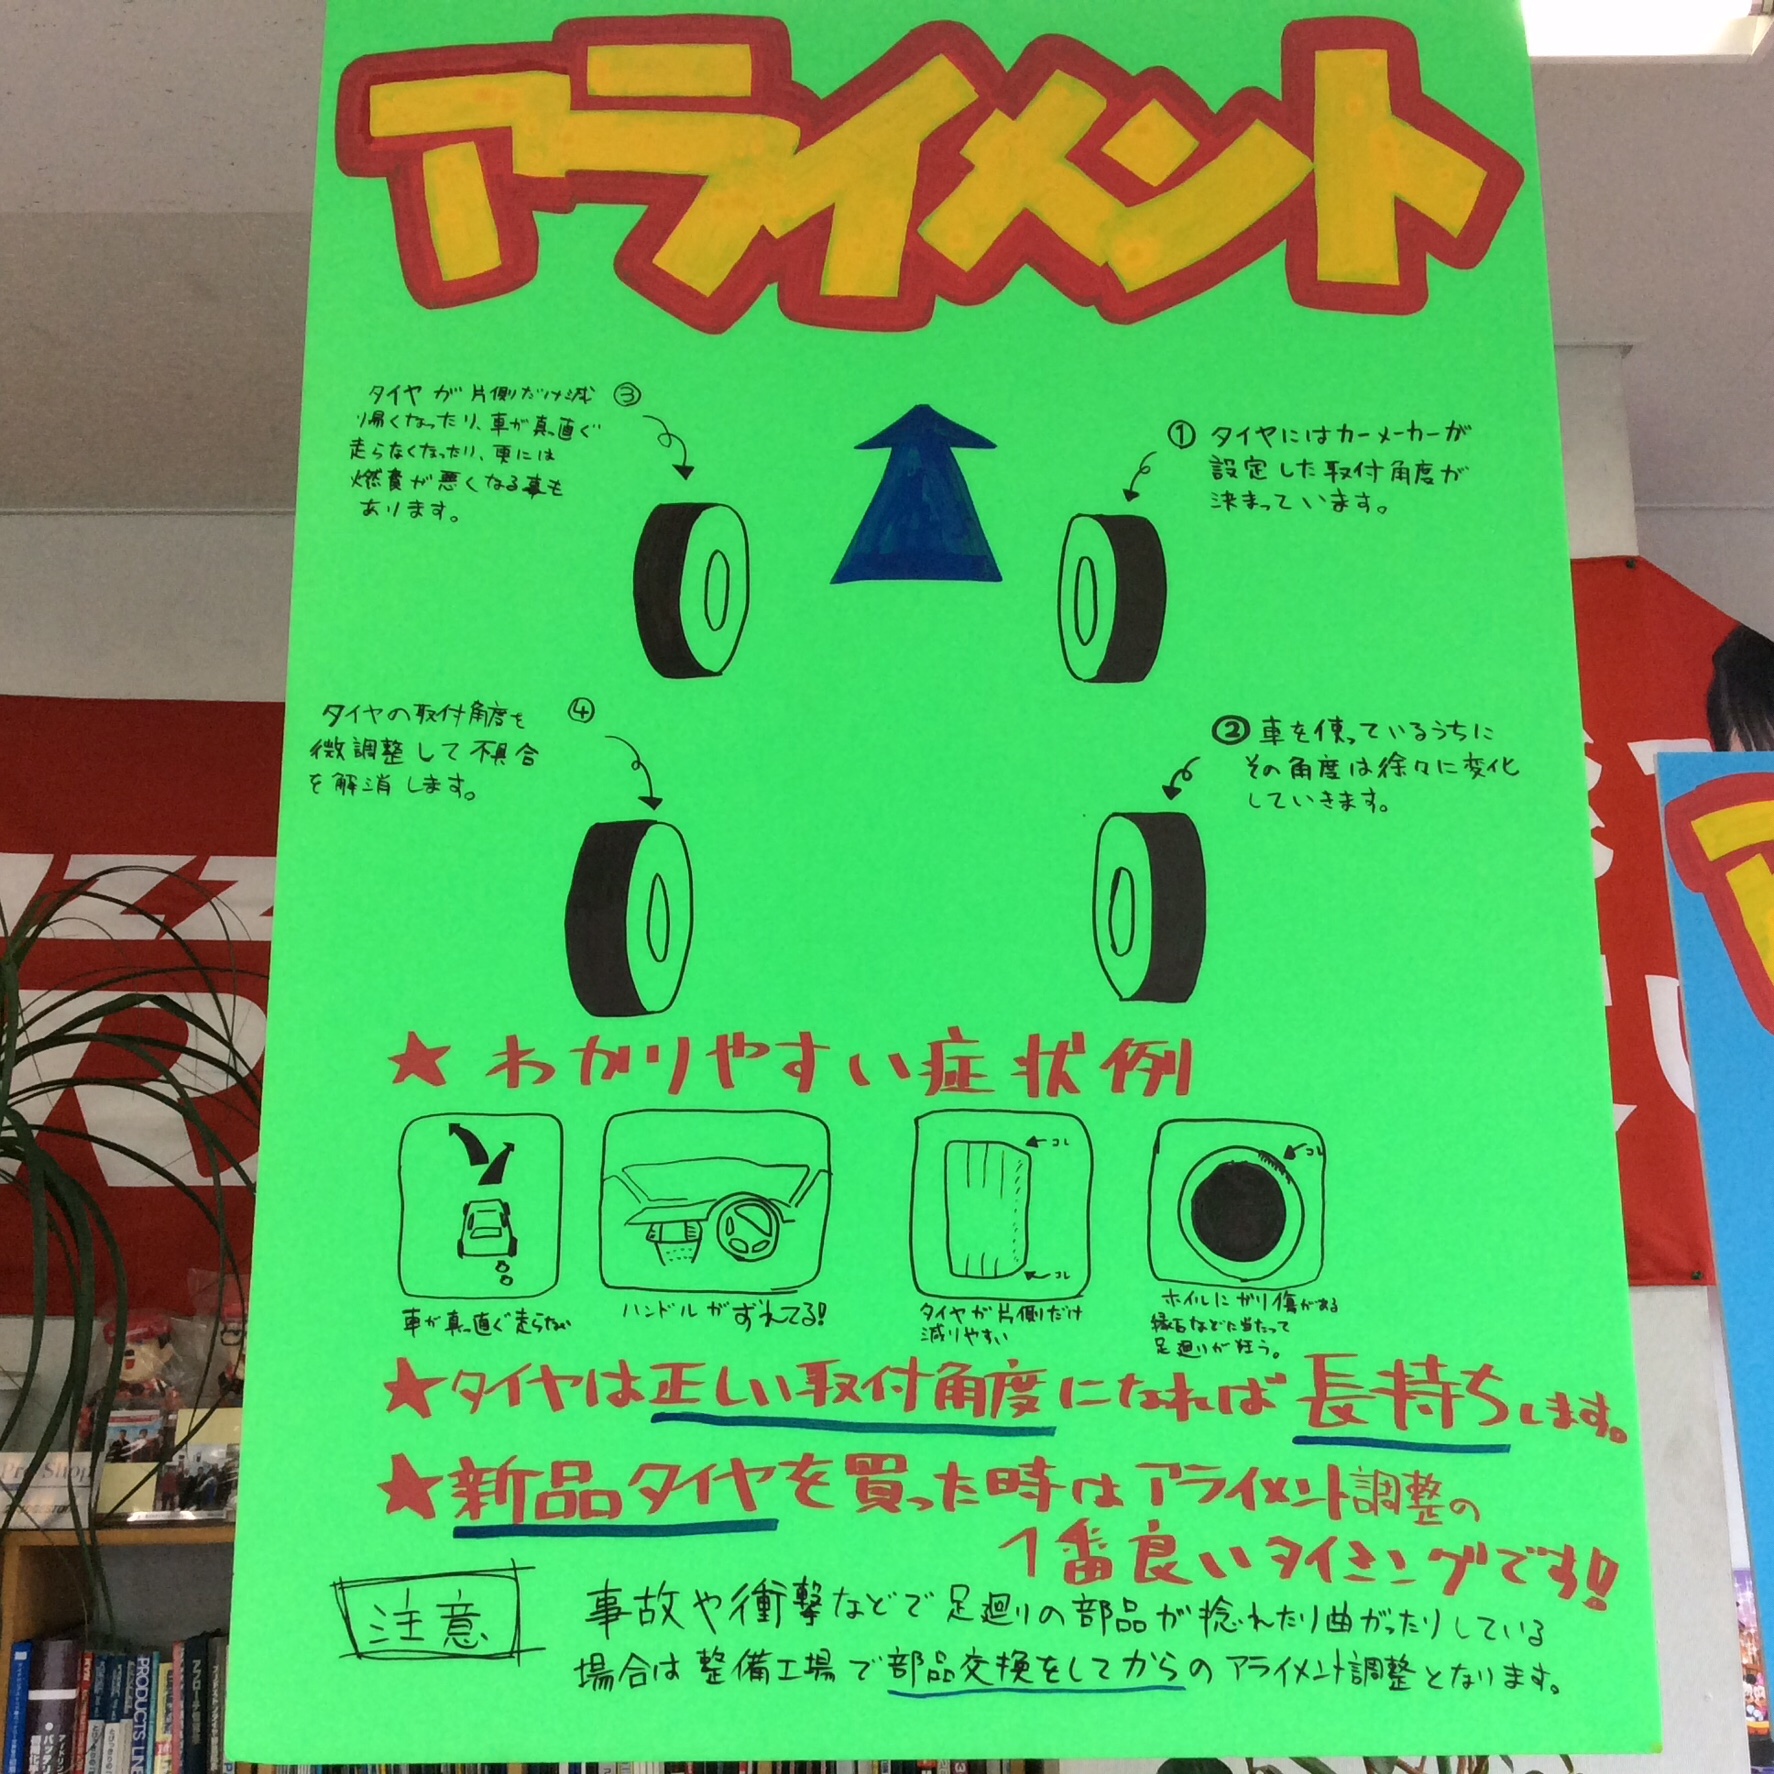 アライメント
① タイヤにはカーメーカーが
設定した取付角度が
決まっています。
② 車を使っているうちに
その角度は徐々に変化
していきます。
タイヤが片側だけ減 ③
り易くなったり、車が真っ直ぐ
走らなくなったり、更には
燃費が悪くなる事も
あります。
タイヤの取付角度を ④
微調整して不具合
を解消します。
★わかりやすい症状例
車が真っ直ぐ走らない
ハンドルがずれてる!
コレ
コレ
タイヤが片側だけ
減りやすい
コレ
ホイルにガリ傷がある
縁石などに当たって
足廻りが狂う。
★タイヤは正しい取付角度になれば長持ちします。
★新品タイヤを買った時はアライメント調整の
1番良いタイミングです!!
注意
事故や衝撃などで足廻りの部品が捻れたり曲がったりしている
場合は整備工場で部品交換をしてからのアライメント調整となります。
Pro Shop
PRODUCTS LINE